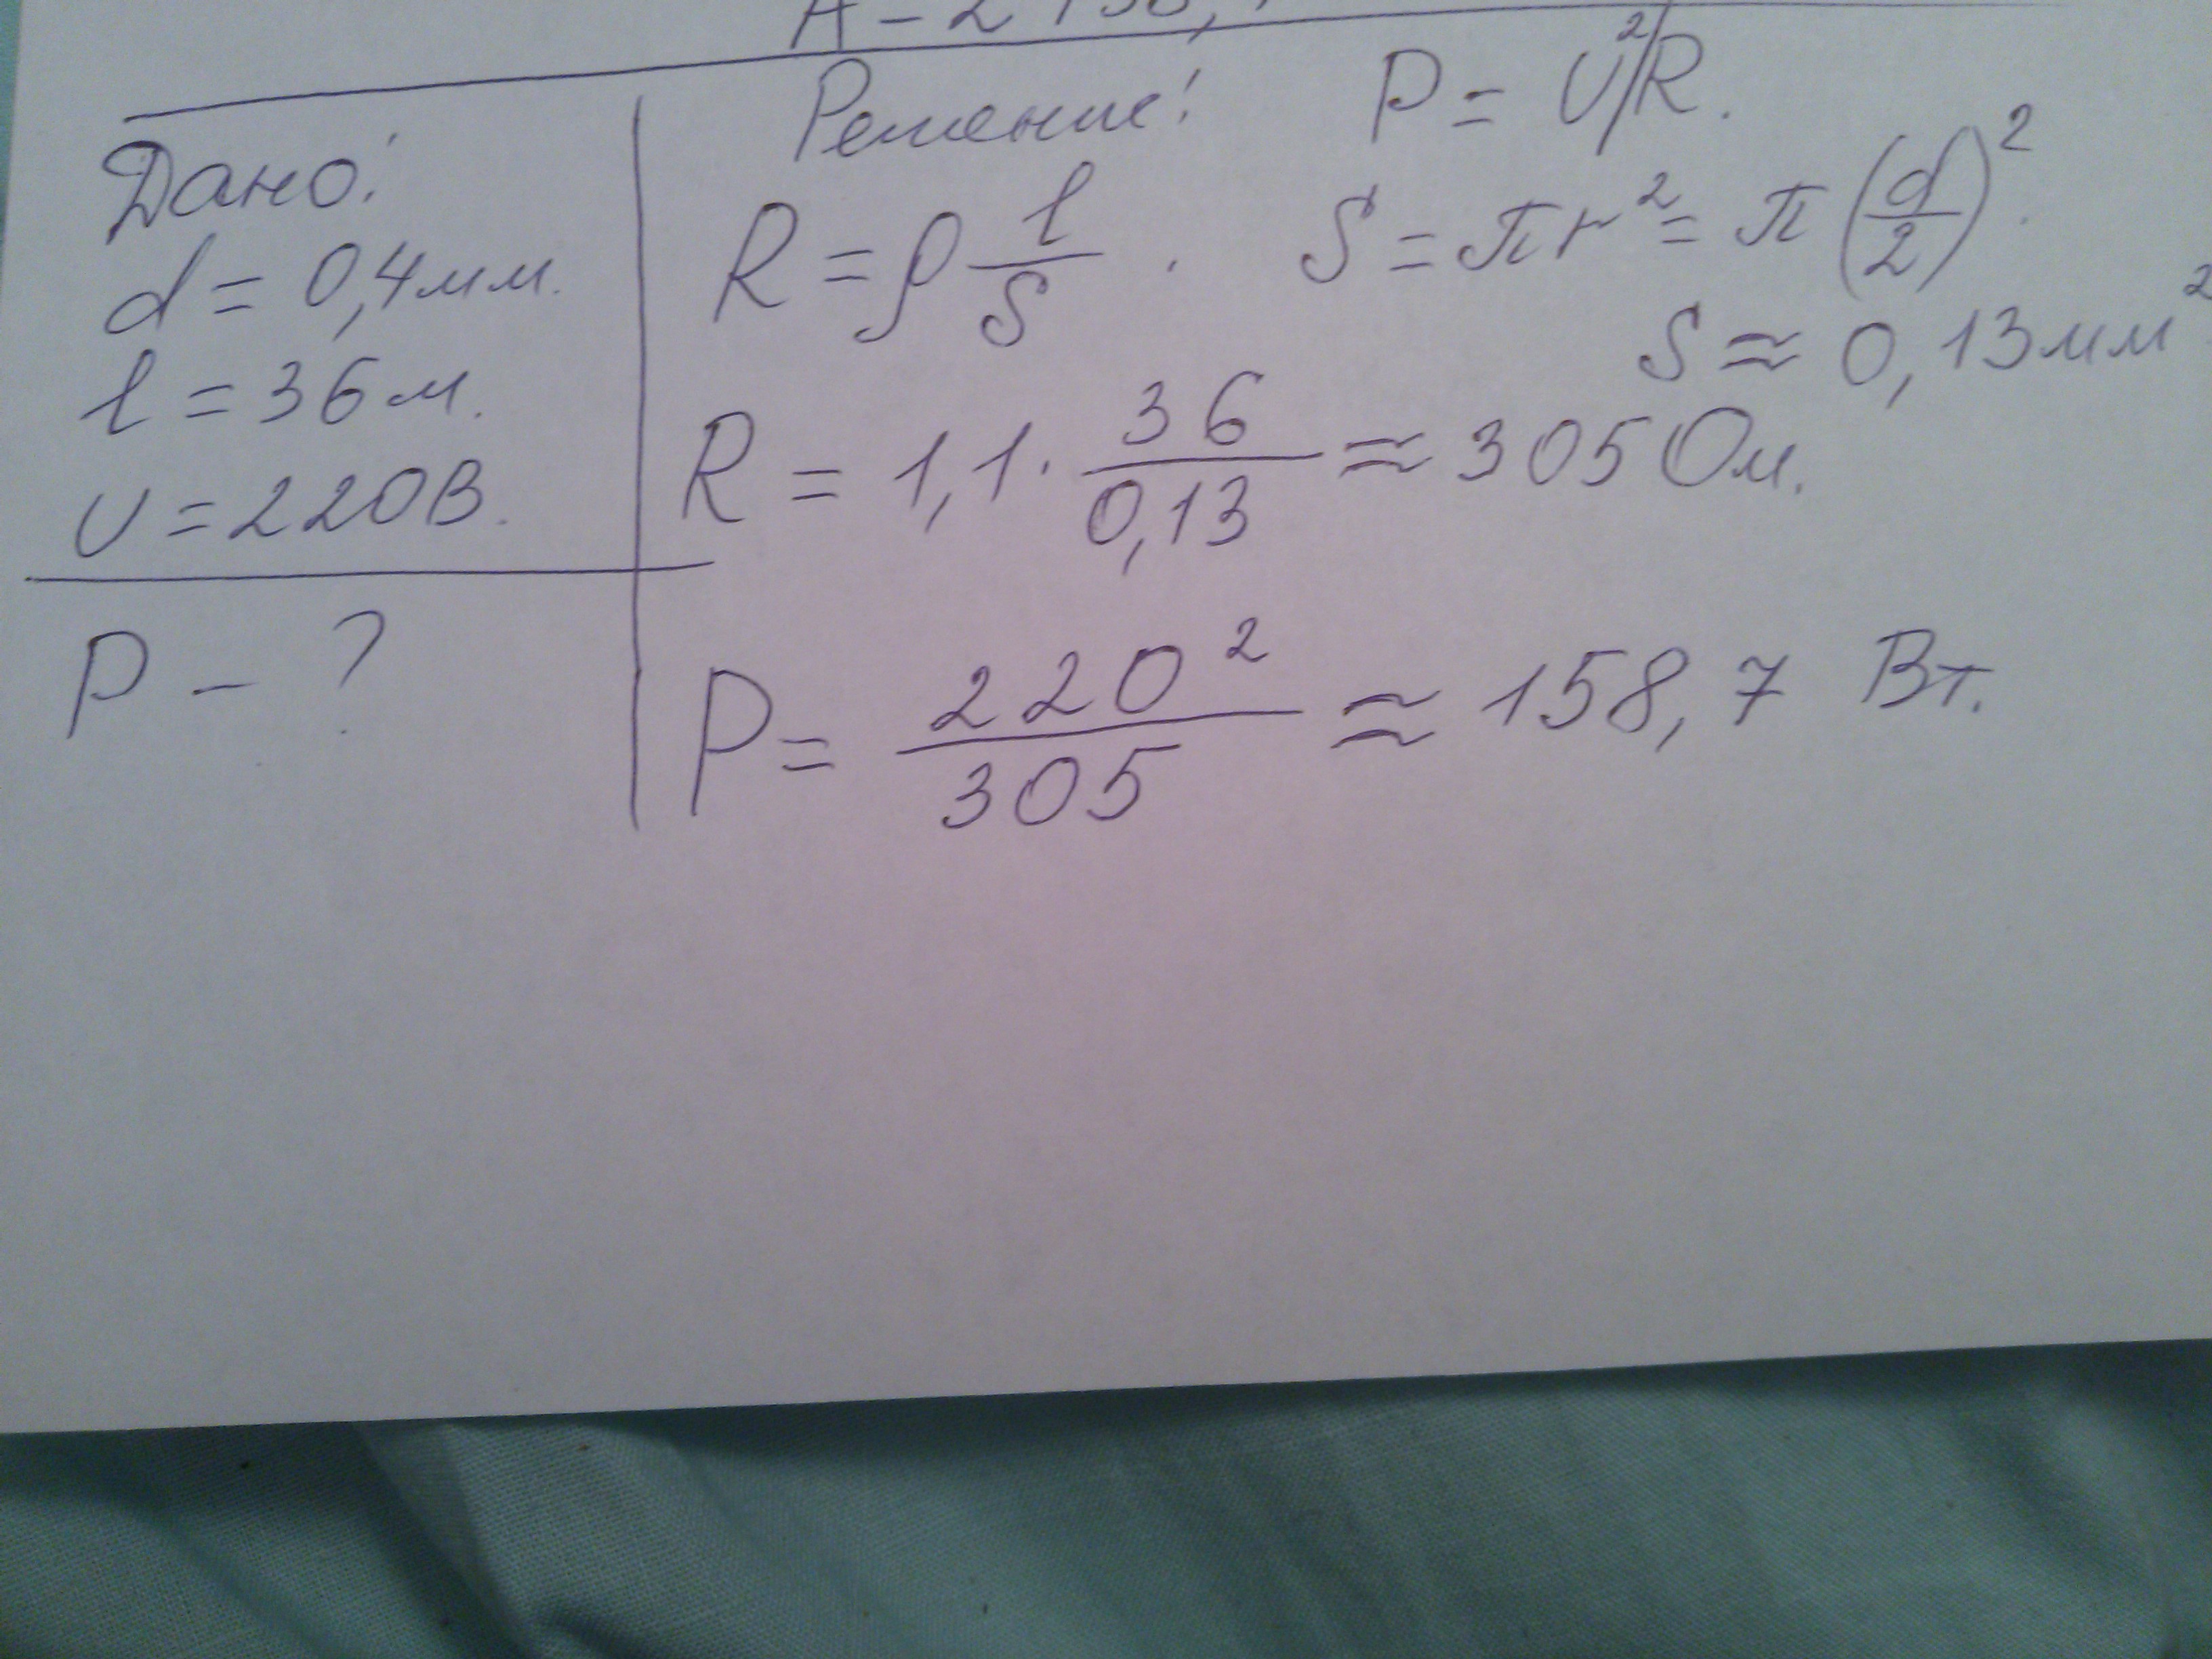 Дано:
d = 0,4 мм.
l = 36 м.
U = 220В.
P - ?
Решение: P = U²/R.
R = ρ l/S . S = πr² = π (d/2)².
S ≈ 0,13 мм²
R = 1,1 · 36/0,13 ≈ 305 Ом.
P = 220²/305 ≈ 158,7 Вт.